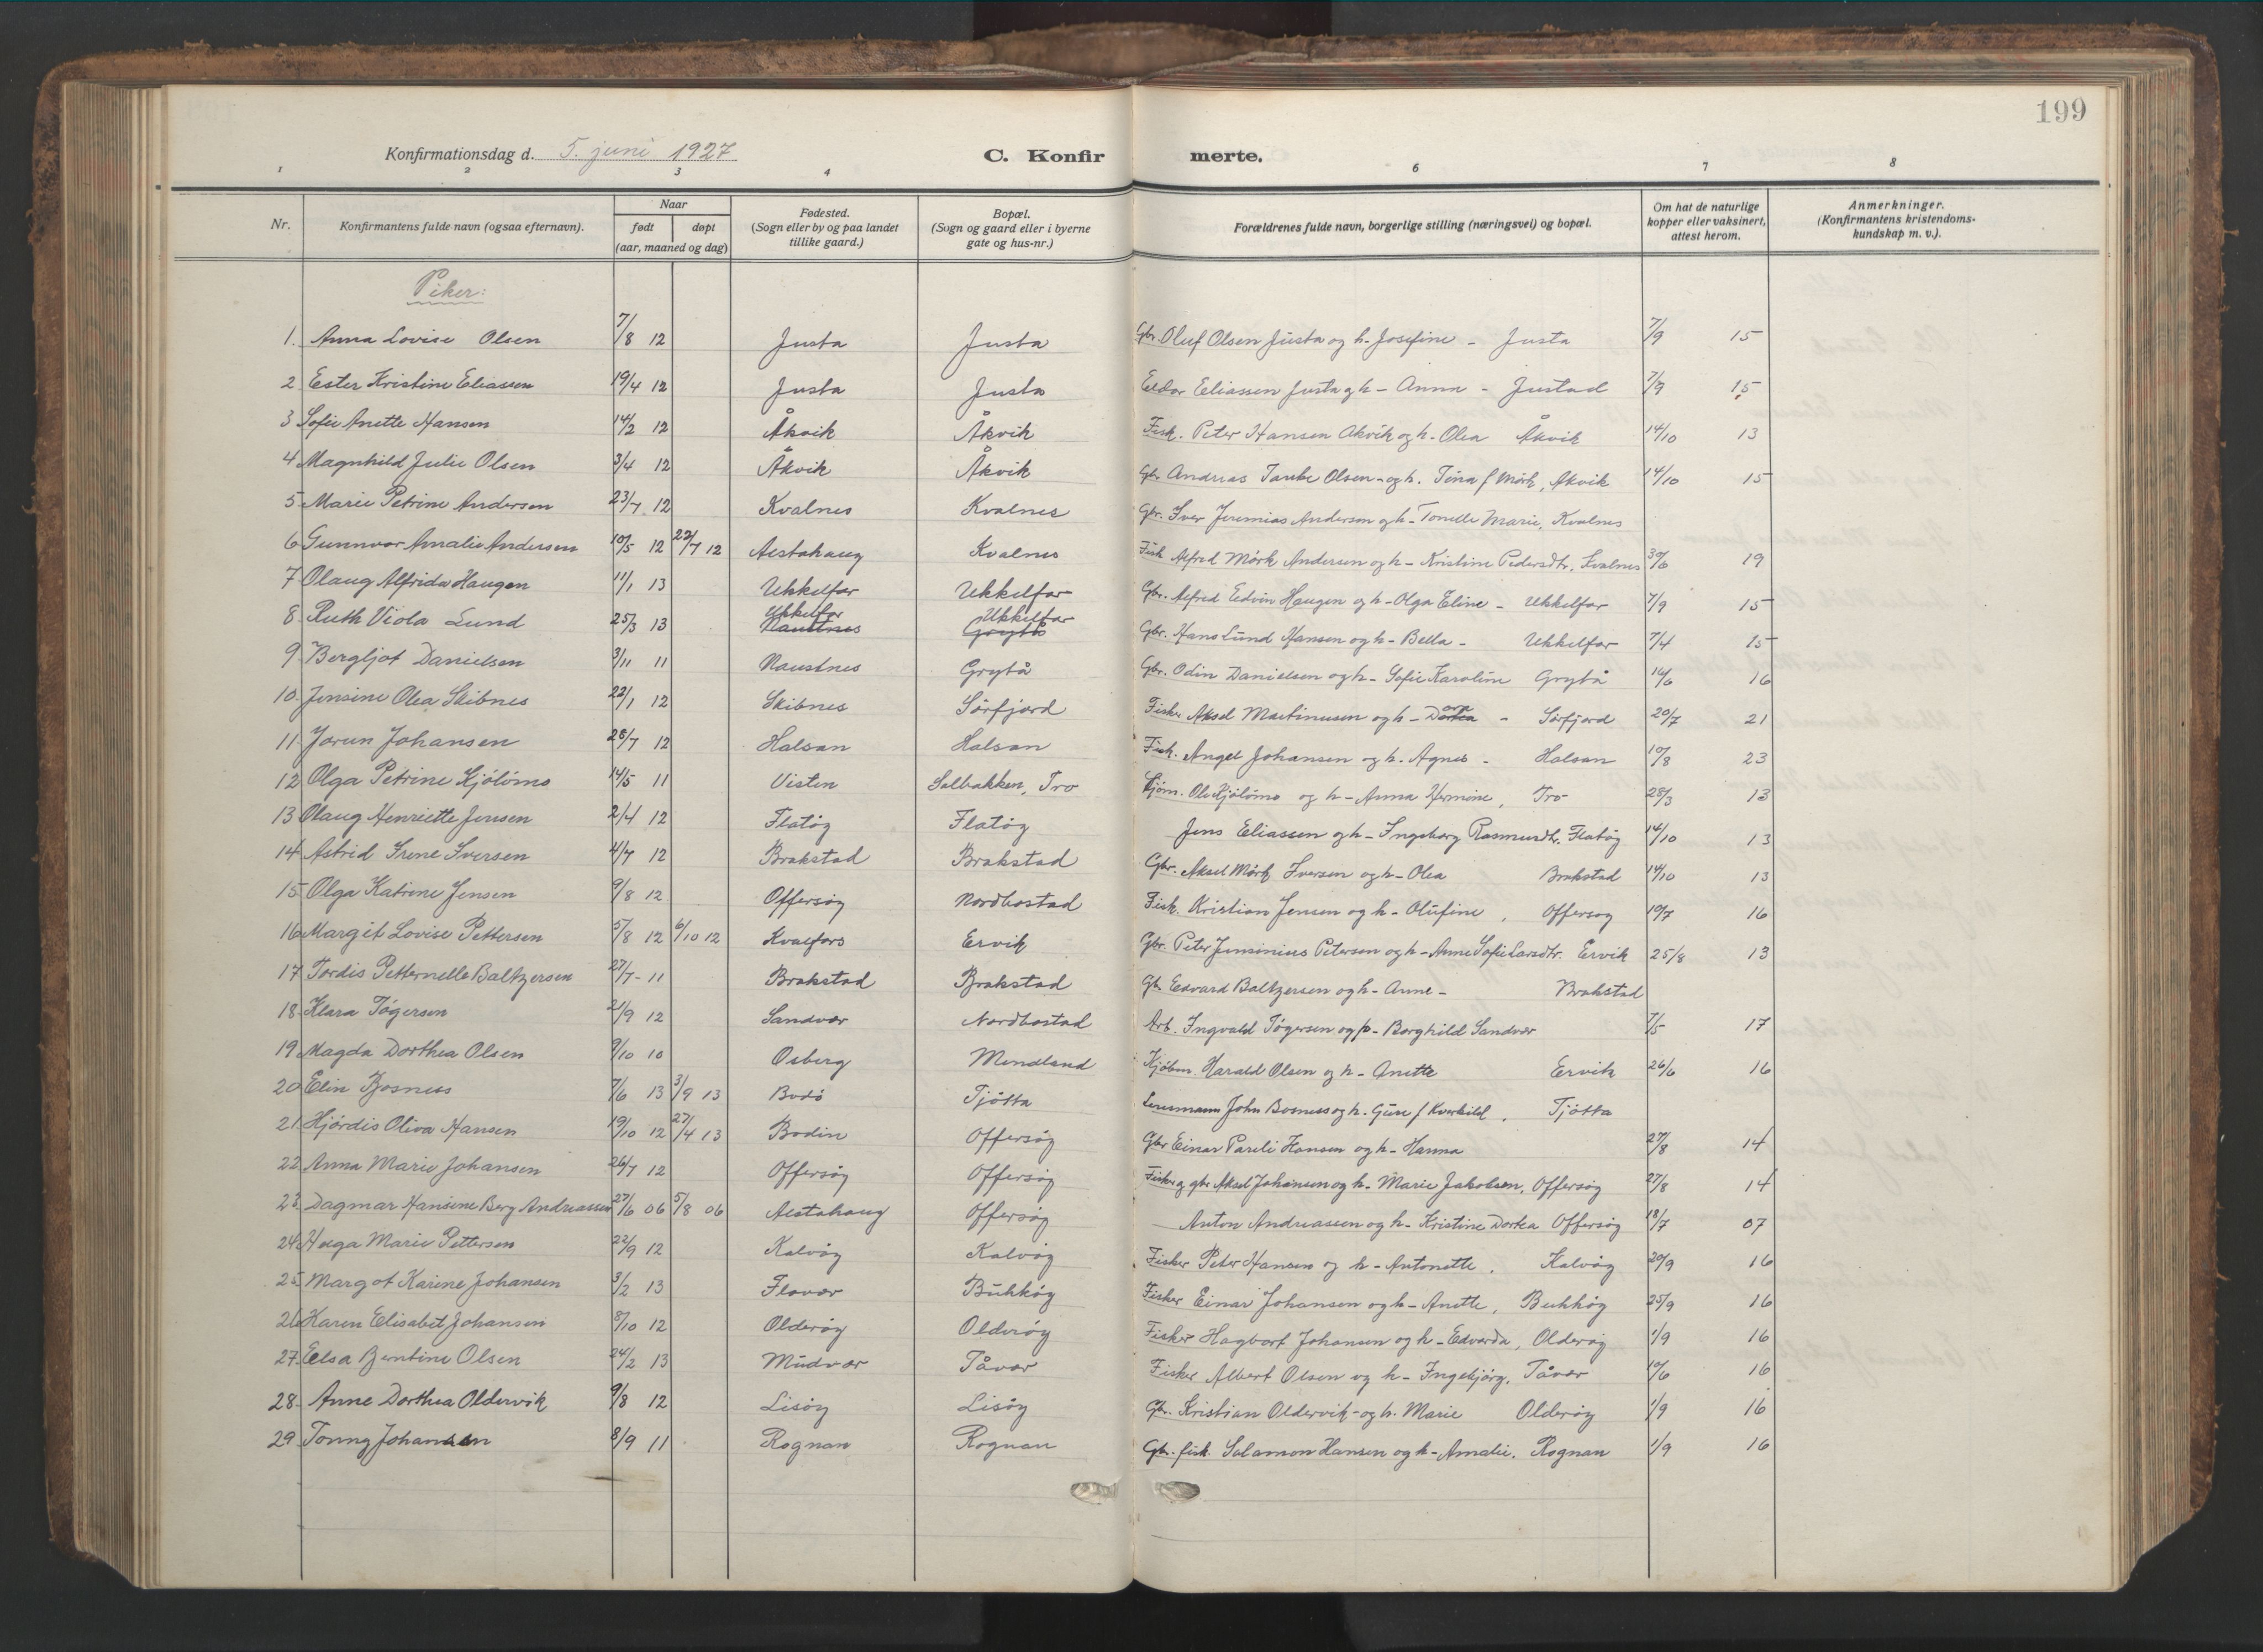 199
Konfirmationsdag d. 5. juni 1927 C. Konfirmerte.
1 2 3 4 6 7 8
Nr. Konfirmantens fulde navn (ogsaa efternavn). Naar født døpt (aar, maaned og dag) Fødested. (Sogn eller by og paa landet tillike gaard.) Bopæl. (Sogn og gaard eller i byerne gate og hus-nr.) Forældrenes fulde navn, borgerlige stilling (næringsvei) og bopæl. Om hat de naturlige kopper eller vaksinert, attest herom. Anmerkninger. (Konfirmantens kristendoms-kundskap m. v.).
Piker:
1. Anna Lovise Olsen 7/8 12 Justa Justa Gbr. Oluf Olsen Justa og h. Josefine - Justa 7/9 15
2 Ester Kristine Eliassen 19/4 12 Justa Justa Eldor Eliassen Justa og h - Anna - Justad 7/9 15
3 Sofie Anette Hansen 14/2 12 Åkvik Åkvik Fisk. Peter Hansen Åkvik og h. Olea Åkvik 14/10 13
4 Magnhild Julie Olsen 3/4 12 Åkvik Åkvik Gbr Andreas Taube Olsen - og h. Tina f Mørk, Åkvik 14/10 15
5 Marie Petrine Andersen 23/7 12 Kvalnes Kvalnes Gbr. Iver Jeremias Andersen og h - Tonelle Marie, Kvalnes
6 Gunnvor Amalie Andersen 10/5 12 22/7 12 Alstahaug Kvalnes Fisk Alfred Mørk Andersen og h - Kristine Pedersdtr. Kvalnes 30/6 19
7 Olaug Alfrida Haugen 11/1 13 Ukkelfar Ukkelfar Gbr. Alfred Edvin Haugen og h - Olga Eline - Ukkelfar 7/9 15
8. Ruth Viola Lund 25/3 13 Ukkelfar Naustnes Ukkelfar Grytå Gbr. Hans Lund Hansen og h - Bella - Ukkelfar 7/4 15
9. Bergljot Danielsen 3/11 11 Naustnes Grytå Gbr. Odin Danielsen og h - Sofie Karoline Grytå 14/6 16
10. Jensine Olea Skibnes 22/1 12 Skibnes Sørfjord Fisker Aksel Martinusen og h - Dortea - Sørfjord 20/7 21
11. Jorun Johansen 28/7 12 Halsan Halsan Fisk. Angel Johansen og h. Agnes - Halsan 10/8 23
12 Olga Petrine Kjølsmo 14/5 11 Visten Solbakken, Tro Ole Kjølsmo og h - Anna Hermine, Tro 28/3 13
13 Olaug Henriette Jensen 2/4 12 Flatøy Flatøy Jens Eliassen og h - Ingeborg Rasmusdtr. Flatøy 14/10 13
14. Astrid Irene Iversen 4/7 12 Brakstad Brakstad Gbr. Aksel Mørk Iversen og h - Olea Brakstad 14/10 13
15 Olga Katrine Jensen 9/8 12 Offersøy Nordbostad Fisk. Kristian Jensen og h - Olufine, Offersøy 10/7 16
16 Margit Lovise Pettersen 5/8 12 6/10 12 Kvalfors Ervik Gbr. Peter Petersen og h - Anne Sofie Larsdtr. Ervik 25/8 13
17 Tordis Petternelle Baltzersen 27/7 - 11 Brakstad Brakstad Gbr. Edvard Baltzersen og h - Anne - Brakstad
18. Klara Tøgersen 21/9 12 Sandvær Nordbostad Arb. Ingvald Tøgersen og p - Borghild Sandvær 7/5 17
19 Magda Dorthea Olsen 9/10 10 Osberg Mindland Kjøbm. Harald Olsen og h - Anette Ervik 26/6 16
20 Elin Bosness 7/6 13 3/9 13 Bodø Tjøtta Lensmann John Bosness og h. Gure f Kverkild, Tjøtta
21. Hjørdis Oliva Hansen 19/10 12 27/4 13 Bodin Offersøy Gbr Einar Pareli Hansen og h - Hanna 27/8 14
22 Anna Marie Johansen 26/7 12 Offersøy Offersøy Fisker og gbr Aksel Johansen og h - Marie Jakobsen, Offersøy 27/8 14
23. Dagmar Hansine Berg Andreassen 27/6 06 5/8 06 Alstahaug Offersøy Anton Andreassen og h - Kristine Dortea Offersøy 18/7 07
24. Helga Marie Pettersen 22/9 12 Kalvøy Kalvøy Fisker Peter Hansen og h - Antonette, Kalvøy 20/9 16
25. Margot Karine Johansen 3/2 13 Flovær Bukkøy Fisker Einar Johansen og h - Anette, Bukkøy 25/9 16
26 Karen Elisabet Johansen 8/10 12 Olderøy Olderøy Fisker Hagbart Johansen og h - Edvarda, Olderøy 1/9 16
27. Elsa Bentine Olsen 24/2 13 Mudvær Tåvær Fisker Albert Olsen og h - Ingebjørg, Tåvær 10/6 16
28. Anne Dorthea Oldervik 9/8 12 Lisøy Lisøy Gbr. Kristian Oldervik - og h. Marie Olderøy 1/9 16
29. Tonny Johansen 8/9 11 Rognan Rognan Gbr. fisk. Salamon Hansen og h - Amalie, Rognan 1/9 16